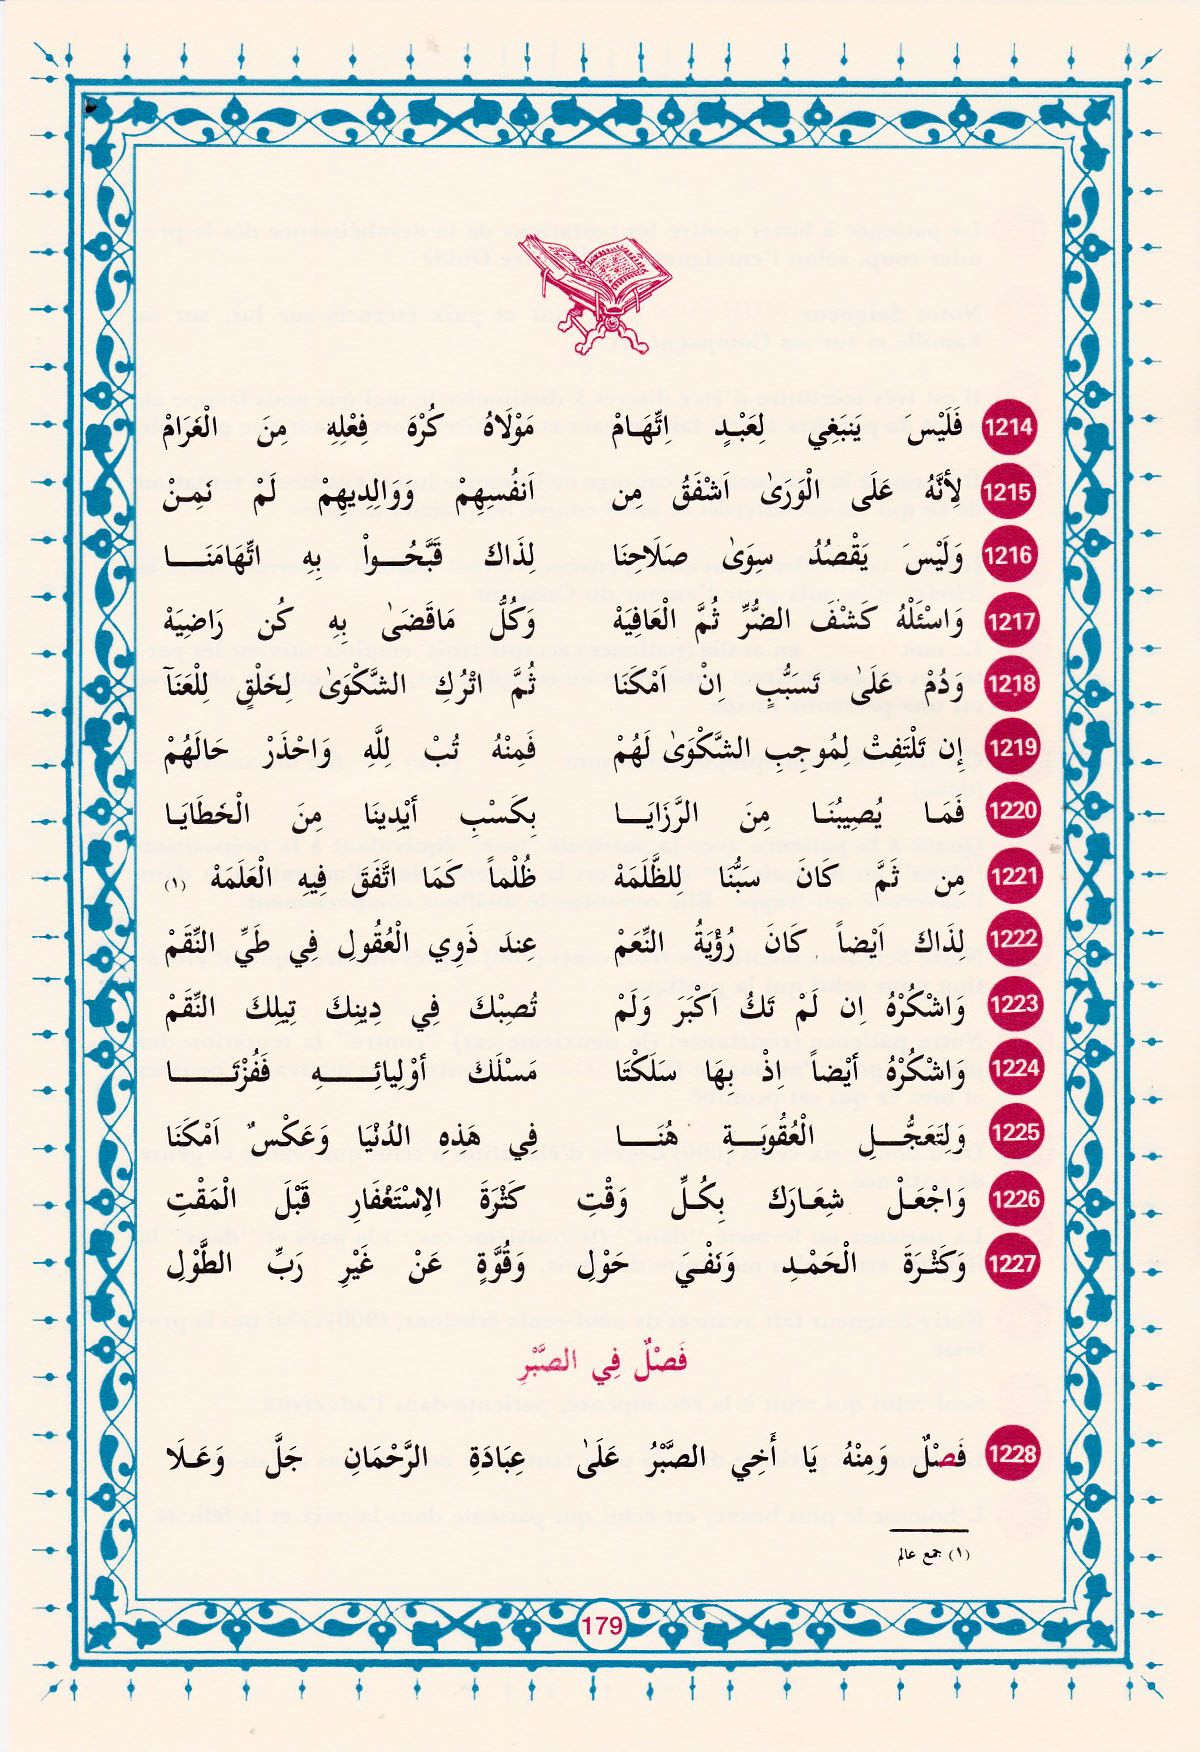 1214 فَلَيْسَ يَنبَغِي لِعَبْدٍ اِتِّهَامْ مَوْلَاهُ كُرْهَ فِعْلِهِ مِنَ الْغَرَامْ
1215 لِأنَّهُ عَلَى الْوَرَىٰ اَشْفَقُ مِن اَنفُسِهِمْ وَوَالِدِيهِمْ لَمْ نَمِنْ
1216 وَلَيْسَ يَقْصُدُ سِوَىٰ صَلَاحِنَا لِذَاكَ قَبَّحُواْ بِهِ اتِّهَامَنَا
1217 وَاسْئَلْهُ كَشْفَ الضُّرِّ ثُمَّ الْعَافِيَهْ وَكُلَّ مَاقَضَىٰ بِهِ كُن رَاضِيَهْ
1218 وَدُمْ عَلَىٰ تَسَبُّبٍ اِنْ اَمْكَنَا ثُمَّ اتْرُكِ الشَّكْوَىٰ لِخَلْقٍ لِلْعَنَآ
1219 إِن تَلْتَفِتْ لِمُوجِبِ الشَّكْوَىٰ لَهُمْ فَمِنْهُ تُبْ لِلَّهِ وَاحْذَرْ حَالَهُمْ
1220 فَمَا يُصِيبُنَا مِنَ الرَّزَايَا بِكَسْبِ أيْدِينَا مِنَ الْخَطَايَا
1221 مِن ثَمَّ كَانَ سَبُّنَا لِلظَّلَمَهْ ظُلْماً كَمَا اتَّفَقَ فِيهِ الْعَلَمَهْ (١)
1222 لِذَاكَ اَيْضاً كَانَ رُؤْيَةُ النِّعَمْ عِندَ ذَوِي الْعُقُولِ فِي طَيِّ النِّقَمْ
1223 وَاشْكُرْهُ اِن لَمْ تَكُ اَكْبَرَ وَلَمْ تُصِبْكَ فِي دِينِكَ تِيلِكَ النِّقَمْ
1224 وَاشْكُرْهُ أَيْضاً اِذْ بِهَا سَلَكْتَا مَسْلَكَ أوْلِيائِهِ فَفُزْتَا
1225 وَلِتَعَجُّلِ الْعُقُوبَةِ هُنَا فِي هَذِهِ الدُنْيَا وَعَكْسٌ اَمْكَنَا
1226 وَاجْعَلْ شِعَارَكَ بِكُلِّ وَقْتِ كَثْرَةَ الِاسْتَغْفَارِ قَبْلَ الْمَقْتِ
1227 وَكَثْرَةَ الْحَمْدِ وَنَفْيَ حَوْلِ وَقُوَّةٍ عَنْ غَيْرِ رَبِّ الطَّوْلِ
فَصْلٌ فِي الصَّبْرِ
1228 فَصْلٌ وَمِنْهُ يَا أَخِي الصَّبْرُ عَلَىٰ عِبَادَةِ الرَّحْمَانِ جَلَّ وَعَلَا
(١) جمع عالم
179